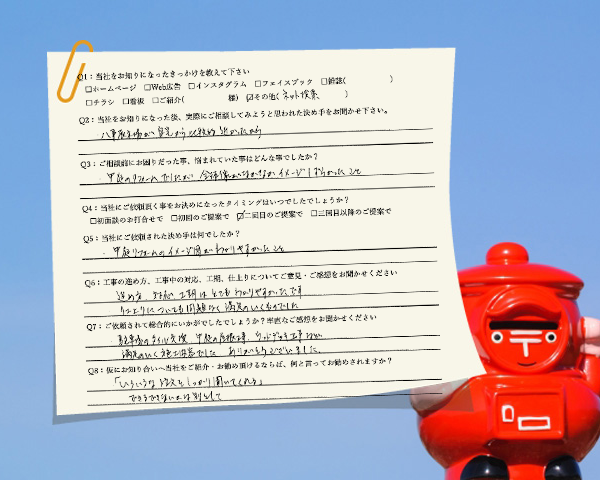 Q1：当社をお知りになったきっかけを教えて下さい
□ホームページ □Web広告 □インスタグラム □フェイスブック □雑誌( )
□チラシ □看板 □ご紹介( 様) ☑その他( ネット検索 )
Q2：当社をお知りになった後、実際にご相談してみようと思われた決め手をお聞かせ下さい。
Q3：ご相談前にお困りだった事、悩まれていた事はどんな事でしたか？
Q4：当社にご依頼頂く事をお決めになったタイミングはいつでしたでしょうか？
□初面談のお打合せで □初回のご提案で ☑二回目のご提案で □三回目以降のご提案で
Q5：当社にご依頼された決め手は何でしたか？
・甲庭リフォームのイメージ図がわかりやすかったこと
Q6：工事の進め方、工事中の対応、工期、仕上りについてご意見・ご感想をお聞かせください
進め方 対応 工期は とても わかりやすかったです
仕上りについても問題なく 満足のいくものでした
Q7：ご依頼されて総合的にいかがでしたでしょうか？率直なご感想をお聞かせください
満足のいく施工内容でした ありがとうございました。
Q8：仮にお知り合いへ当社をご紹介・お勧め頂けるならば、何と言ってお勧めされますか？
「いろいろな 答えを しっかり 聞いてくれる」
できるできないは別として